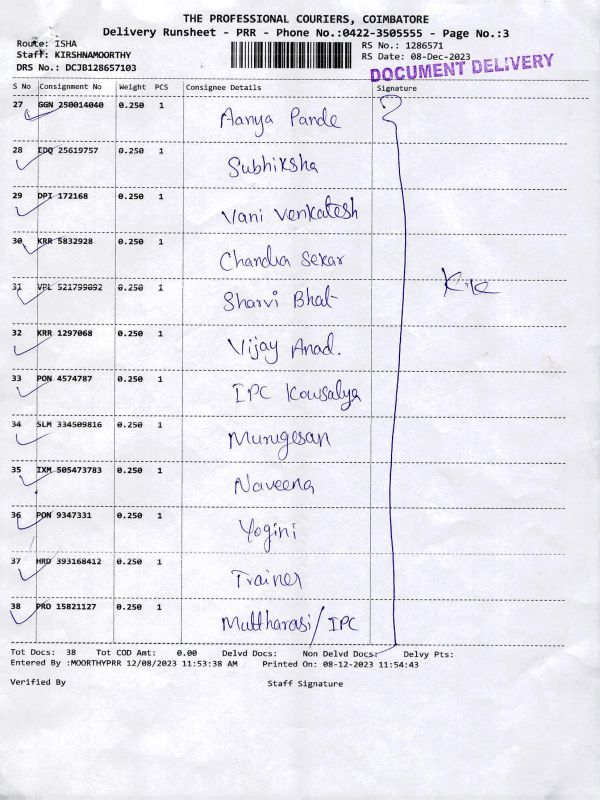 THE PROFESSIONAL COURIERS, COIMBATORE
Delivery Runsheet - PRR - Phone No.:0422-3505555 - Page No.:3
Route: ISHA
Staff: KIRSHNAMOORTHY
DRS No.: DCJB128657103
RS No.: 1286571
RS Date: 08-Dec-2023
DOCUMENT DELIVERY
S No Consignment No Weight PCS Consignee Details Signature
27 GGN 250014040 0.250 1 Aanya Pande
28 EDQ 25619757 0.250 1 Subhiksha
29 DPI 172168 0.250 1 Vani Venkatesh
30 KRR 5832928 0.250 1 Chandra Sekar
31 VPL 521799092 0.250 1 Sharvi Bhat
32 KRR 1297068 0.250 1 Vijay Anad.
33 PON 4574787 0.250 1 IPC Kowsalya
34 SLM 334509816 0.250 1 Murugesan
35 IXM 505473783 0.250 1 Naveena
36 PON 9347331 0.250 1 Yogini
37 HRD 393168412 0.250 1 Trainer
38 PRO 15821127 0.250 1 Muttharasi/IPC
Tot Docs: 38 Tot COD Amt: 0.00 Delvd Docs: Non Delvd Docs: Delvy Pts:
Entered By :MOORTHYPRR 12/08/2023 11:53:38 AM Printed On: 08-12-2023 11:54:43
Verified By Staff Signature